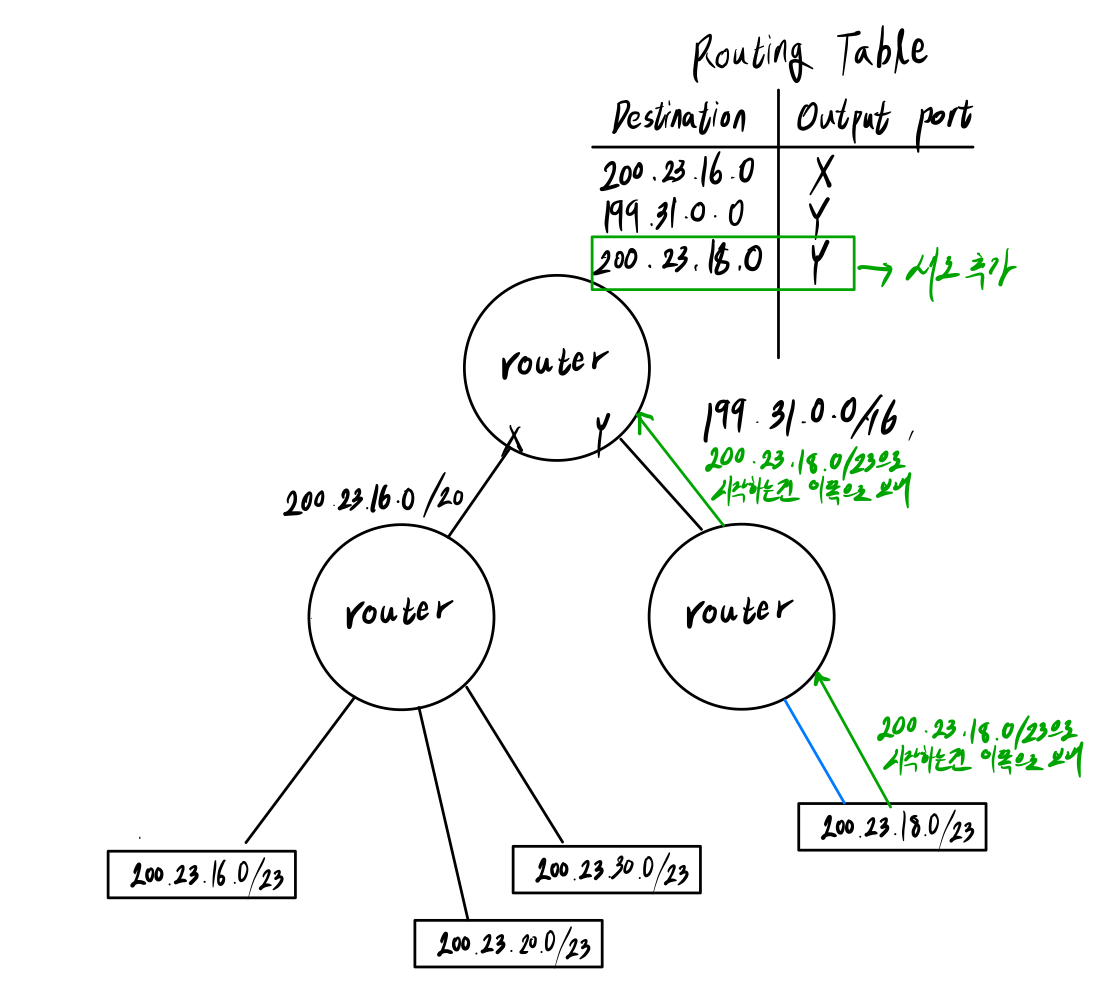 Routing Table
Destination Output port
200.23.16.0 X
199.31.0.0 Y
200.23.18.0 Y → 새로 추가
router
X Y
199.31.0.0/16,
200.23.18.0/23으로
시작하는건 이쪽으로 보내
200.23.16.0 /20
router
router
200.23.18.0/23으로
시작하는건 이쪽으로 보내
200.23.18.0/23
200.23.16.0/23
200.23.30.0/23
200.23.20.0/23